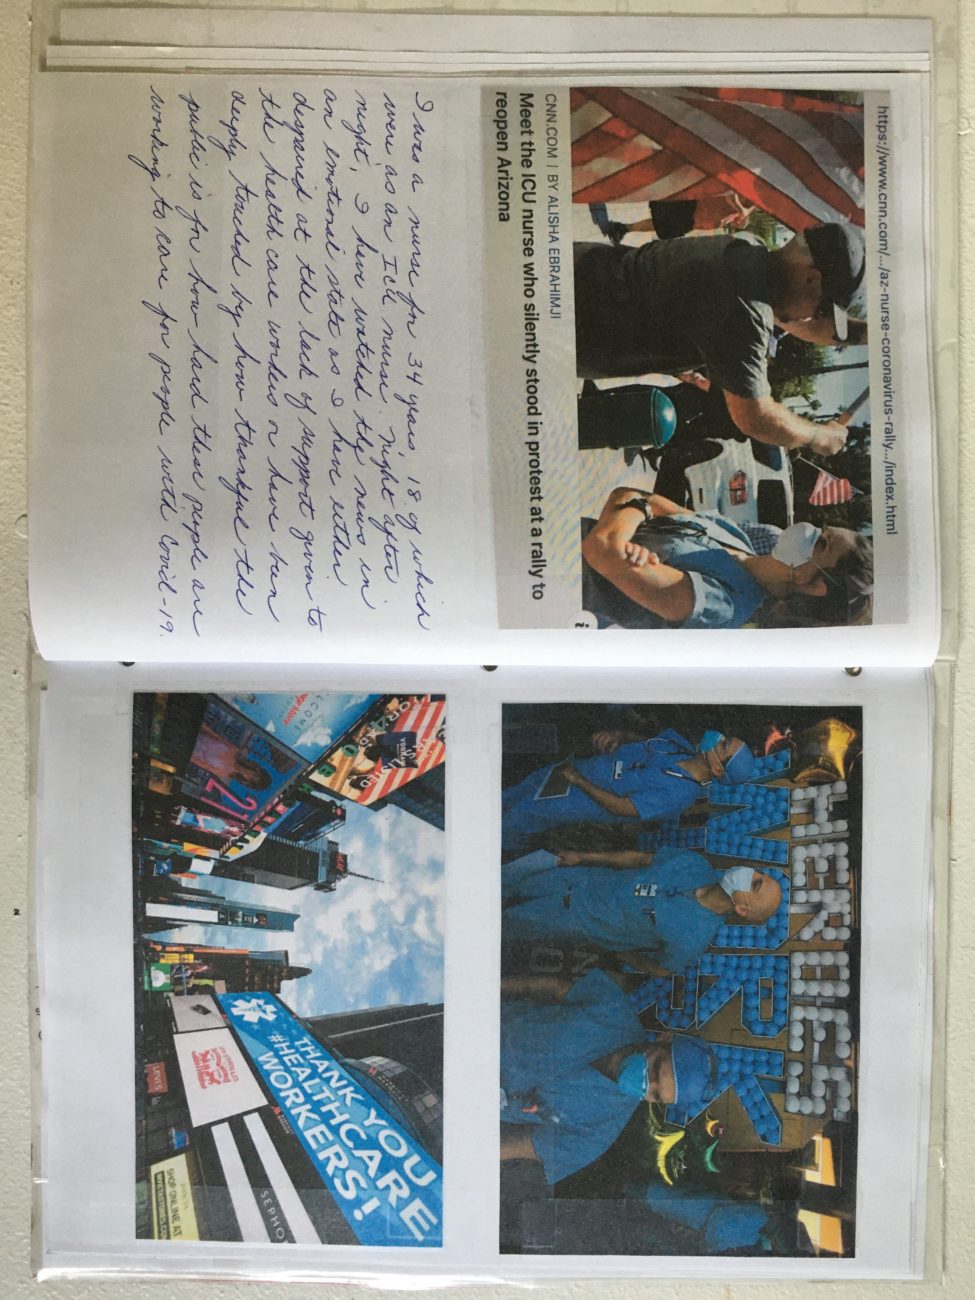 https://www.cnn.com/.../az-nurse-coronavirus-rally.../index.html
CNN.COM | BY ALISHA EBRAHIMJI
Meet the ICU nurse who silently stood in protest at a rally to
reopen Arizona
I was a nurse for 34 years 18 of which
were as an ICU nurse. Night after
night, I have watched the news in
an emotional state as I have either
despaired at the lack of support given to
the health care workers or have been
deeply touched by how thankful the
public is for how hard these people are
working to care for people with Covid-19.
HEROES
WORK
THANK YOU
#HEALTHCARE
WORKERS!
SEPHO
LEVI'S
SHOP ONLINE AT